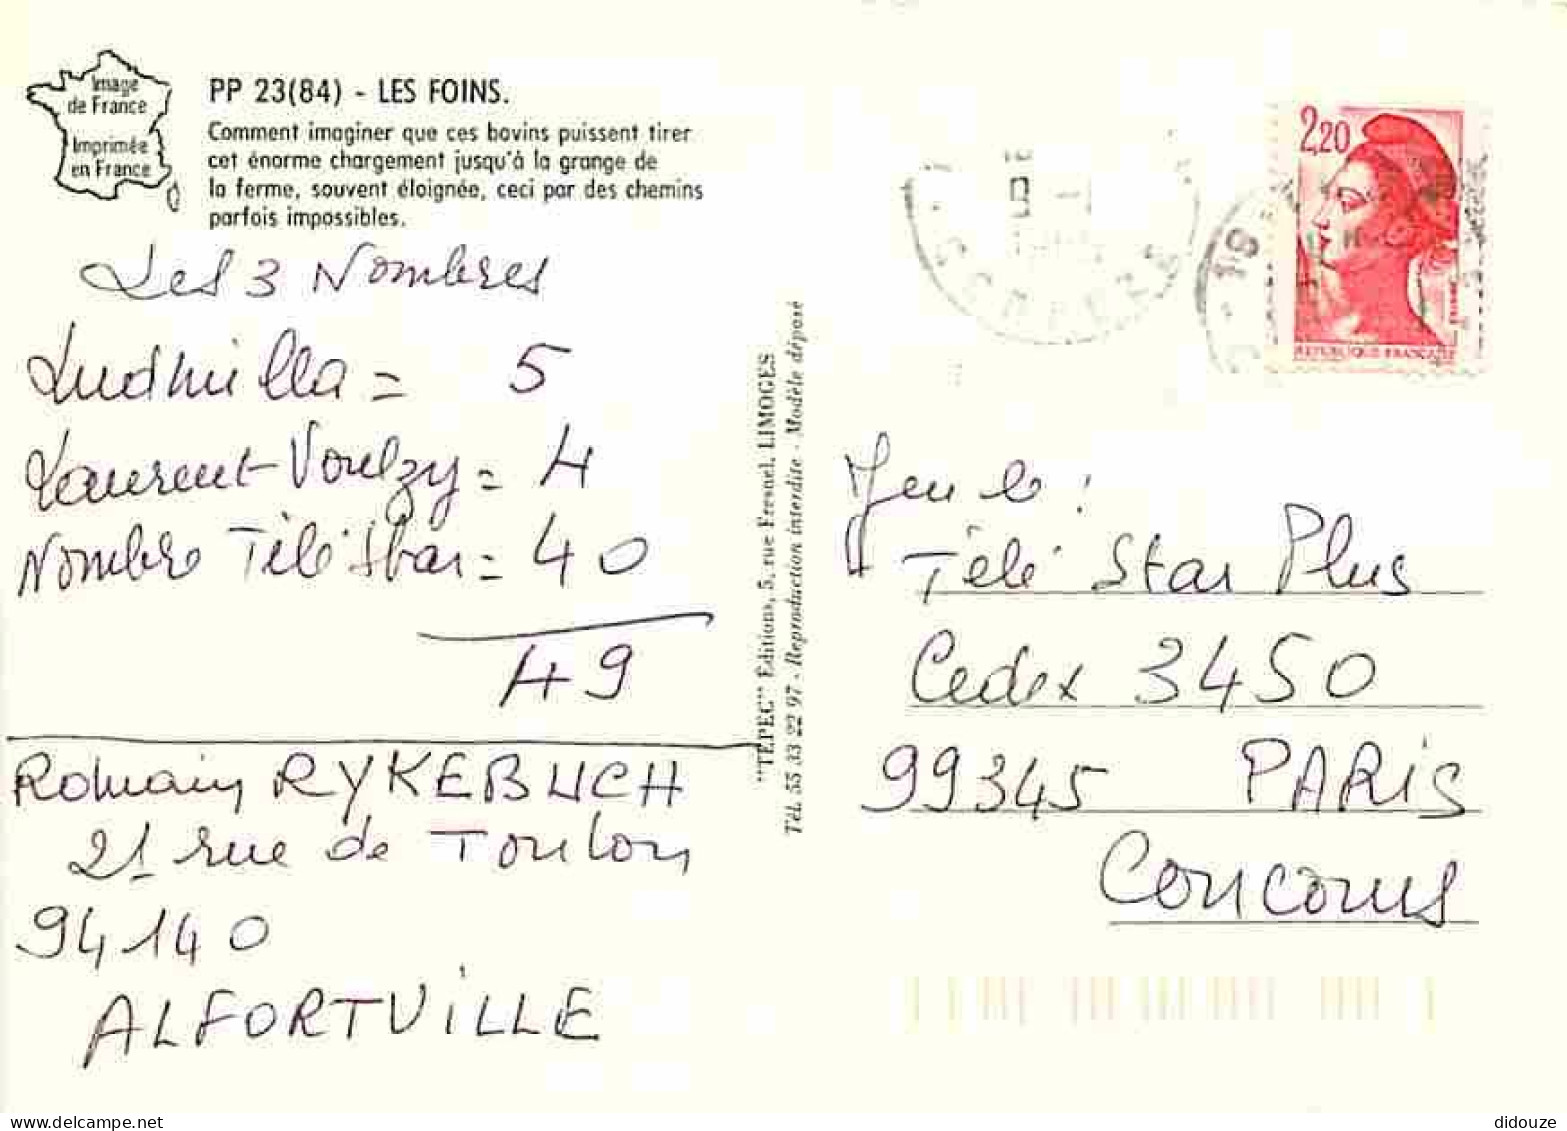 Image
de France
Imprimée
en France
PP 23(84) - LES FOINS.
Comment imaginer que ces bovins puissent tirer
cet énorme chargement jusqu'à la grange de
la ferme, souvent éloignée, ceci par des chemins
parfois impossibles.
Les 3 Nombres
Ludmilla = 5
Laurent-Voulzy = 4
Nombre Télé Star = 40
49
Romain RYKEBUCH
21 rue de Toulon
94140
ALFORTVILLE
"TÉPEC" Éditions, 5, rue Fresnel, LIMOGES
Tél. 55 33 22 97 - Reproduction interdite - Modèle déposé
2,20
REPUBLIQUE FRANÇAISE
Jeu
Télé Star Plus
Cedex 3450
99345 PARIS
Concours
didouze